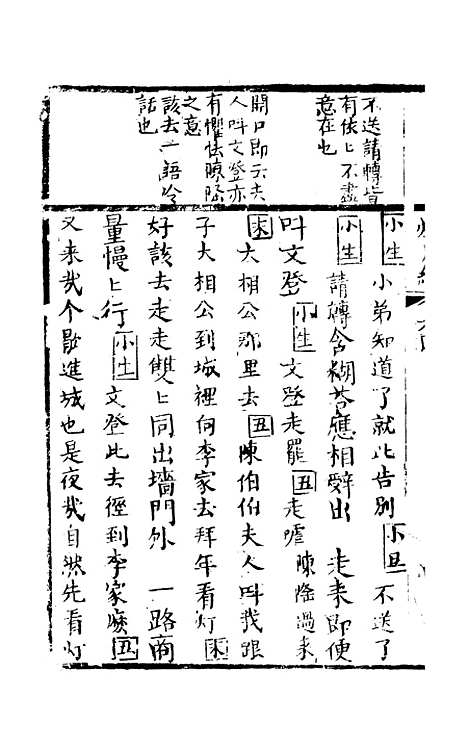 不送請轉皆
有依上不盡
意在也
開口即云夫
人呌文登亦
有懼怯陳隆
之意
該去一語冷
話也
小生 小弟知道了就此告別 小旦 不送了
小生 請轉含糊荅應相辭出 走来即便
呌文登 小生 文登走罷 丑 走嘑 陳隆過来
末 大相公那里去 丑 陳伯伯夫人呌我跟
子大相公到城裡何李家去拜年看灯 末
好該去走走雙上同出墻門外 一路商
量慢上行 小生 文登此去徑到李家癈 丑
又来哉个歇進城也是夜哉自然先看灯